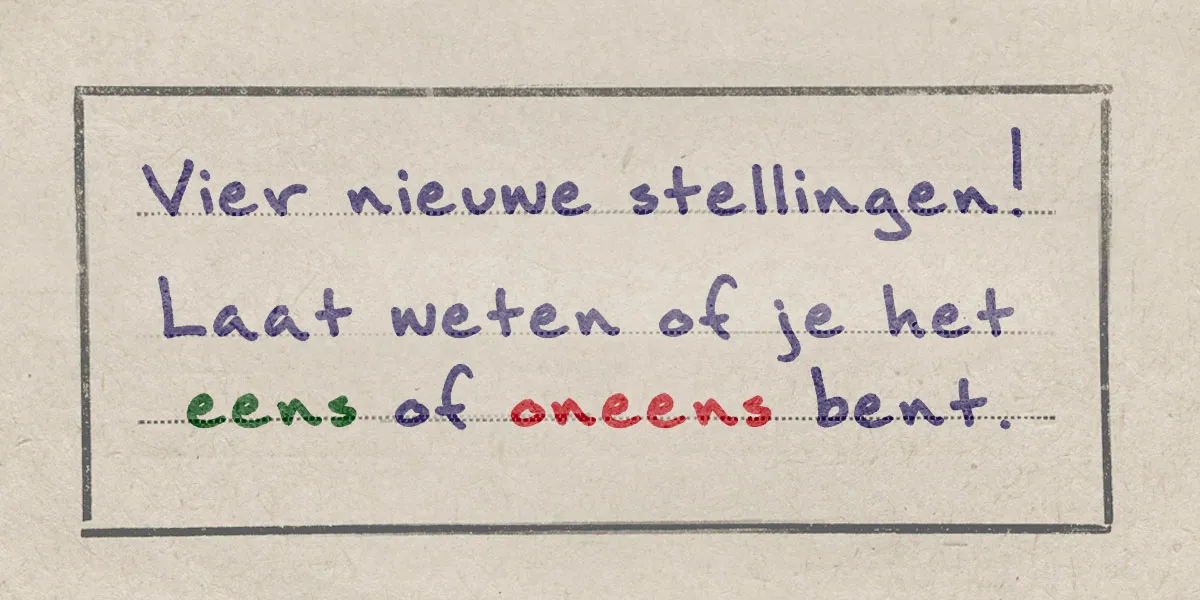 Vier nieuwe stellingen!
Laat weten of je het
eens of oneens bent.